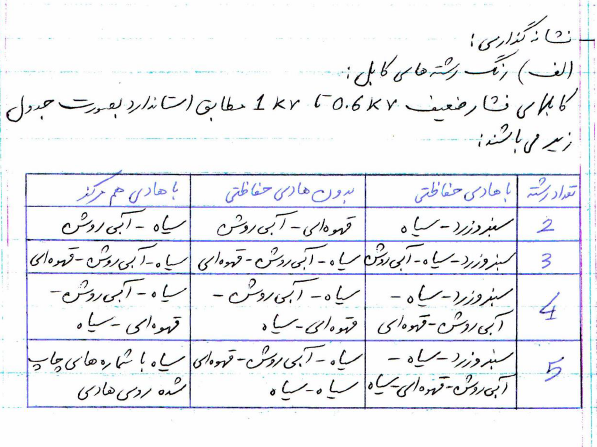 نشانه گذاری:
الف) رنگ رشته های کابل:
کابلهای فشار ضعیف 0.6 kv تا 1 kv مطابق استاندارد بصورت جدول
زیر می باشند:
تعداد رشته | با هادی حفاظتی | بدون هادی حفاظتی | با هادی هم مرکز
2 | سبز و زرد - سیاه | قهوه ای - آبی روشن | سیاه - آبی روشن
3 | سبز و زرد - سیاه - آبی روشن | سیاه - آبی روشن - قهوه ای | سیاه - آبی روشن - قهوه ای
4 | سبز و زرد - سیاه - | سیاه - آبی روشن - | سیاه - آبی روشن -
آبی روشن - قهوه ای | قهوه ای - سیاه | قهوه ای - سیاه
5 | سبز و زرد - سیاه - | سیاه - آبی روشن - قهوه ای | سیاه با شماره های چاپ
آبی روشن - قهوه ای - سیاه | سیاه - سیاه | شده روی هادی